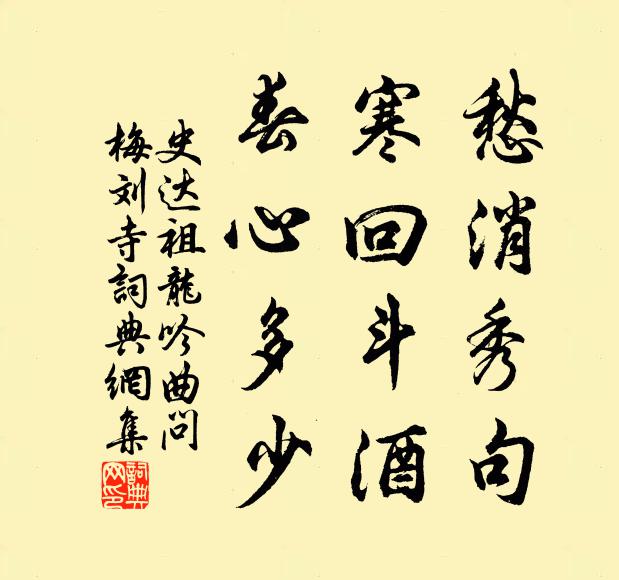 愁消秀句
寒回斗酒
春心多少
史达祖龍吟曲问
梅刘寺詞典網集
詞典网印